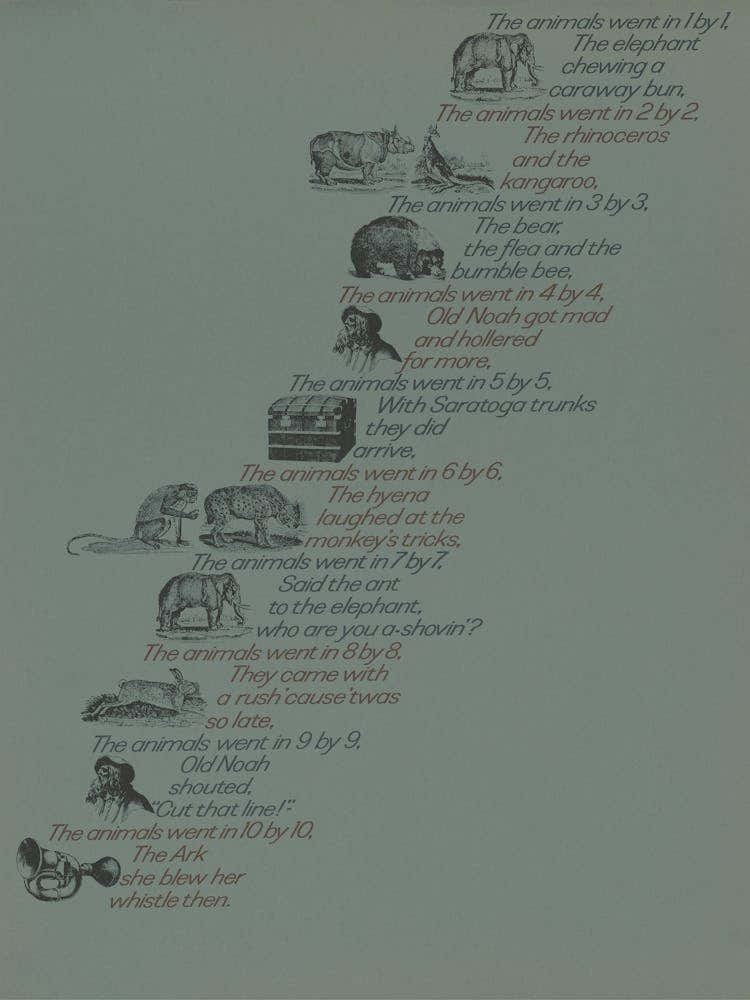 The animals went in 1 by 1,
The elephant
chewing a
caraway bun,
The animals went in 2 by 2,
The rhinoceros
and the
kangaroo,
The animals went in 3 by 3,
The bear,
the flea and the
bumble bee,
The animals went in 4 by 4,
Old Noah got mad
and hollered
for more,
The animals went in 5 by 5,
With Saratoga trunks
they did
arrive,
The animals went in 6 by 6,
The hyena
laughed at the
monkey's tricks,
The animals went in 7 by 7,
Said the ant
to the elephant,
who are you a-shovin'?
The animals went in 8 by 8,
They came with
a rush 'cause 'twas
so late,
The animals went in 9 by 9,
Old Noah
shouted,
"Cut that line!"
The animals went in 10 by 10,
The Ark
she blew her
whistle then.